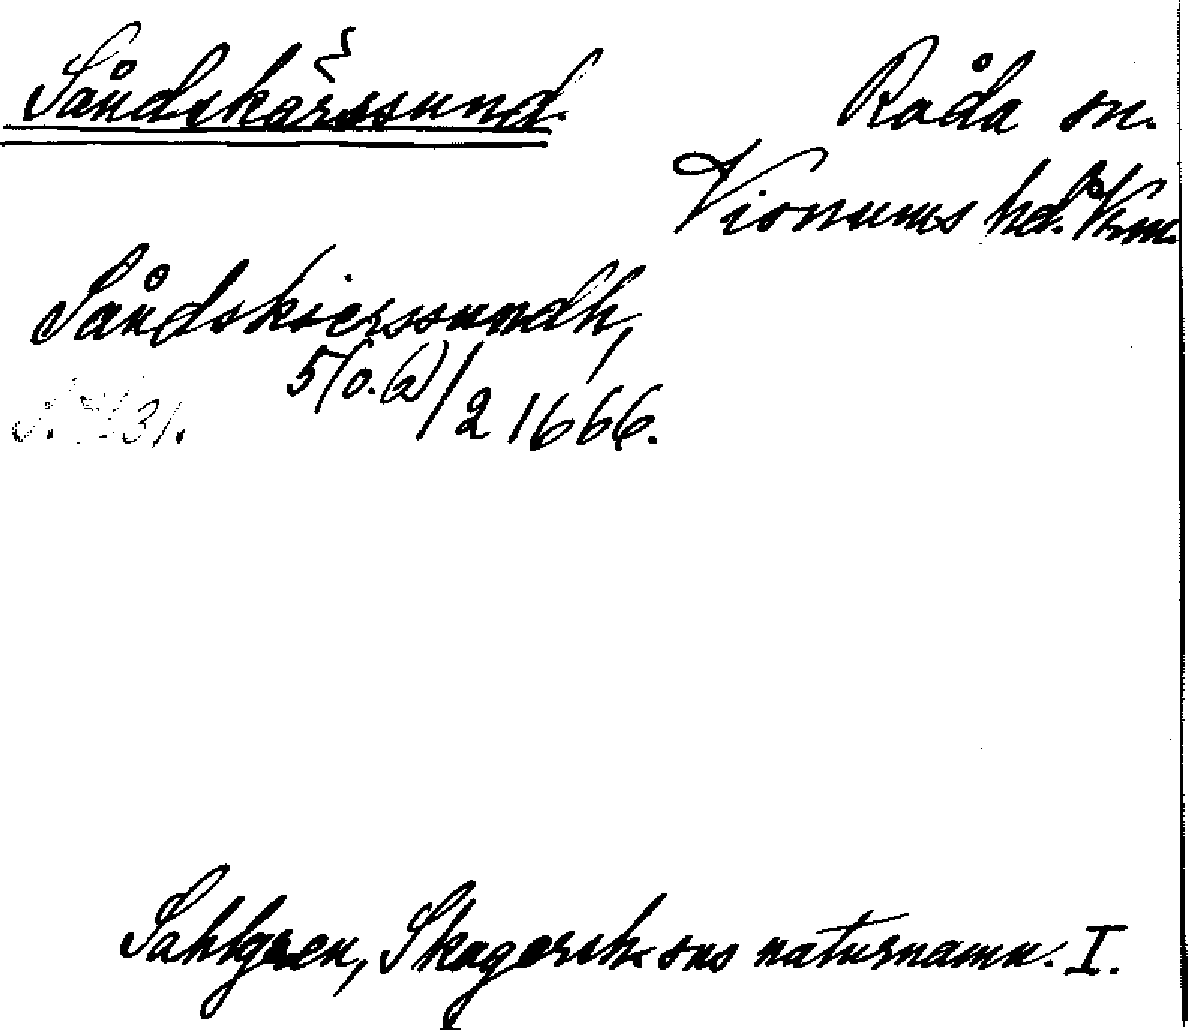 Såndskärssund.
Råda sn.
Visnums hd. Vrm.
Såndskierssundh,
5/(o.6)/2 1666.
Sahlgren, Skagershs sns naturnamn. I.